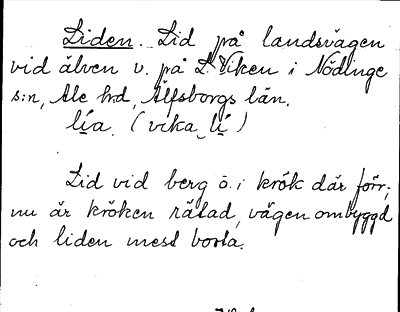 Liden. Lid på landsvägen
vid älven v. på L. Viken i Nödinge
s:n, Ale h:d, Älfsborgs län.
lia. (vika_li)
Lid vid berg ö. i krök där förr;
nu är kröken rätad, vägen ombyggd
och liden mest borta.